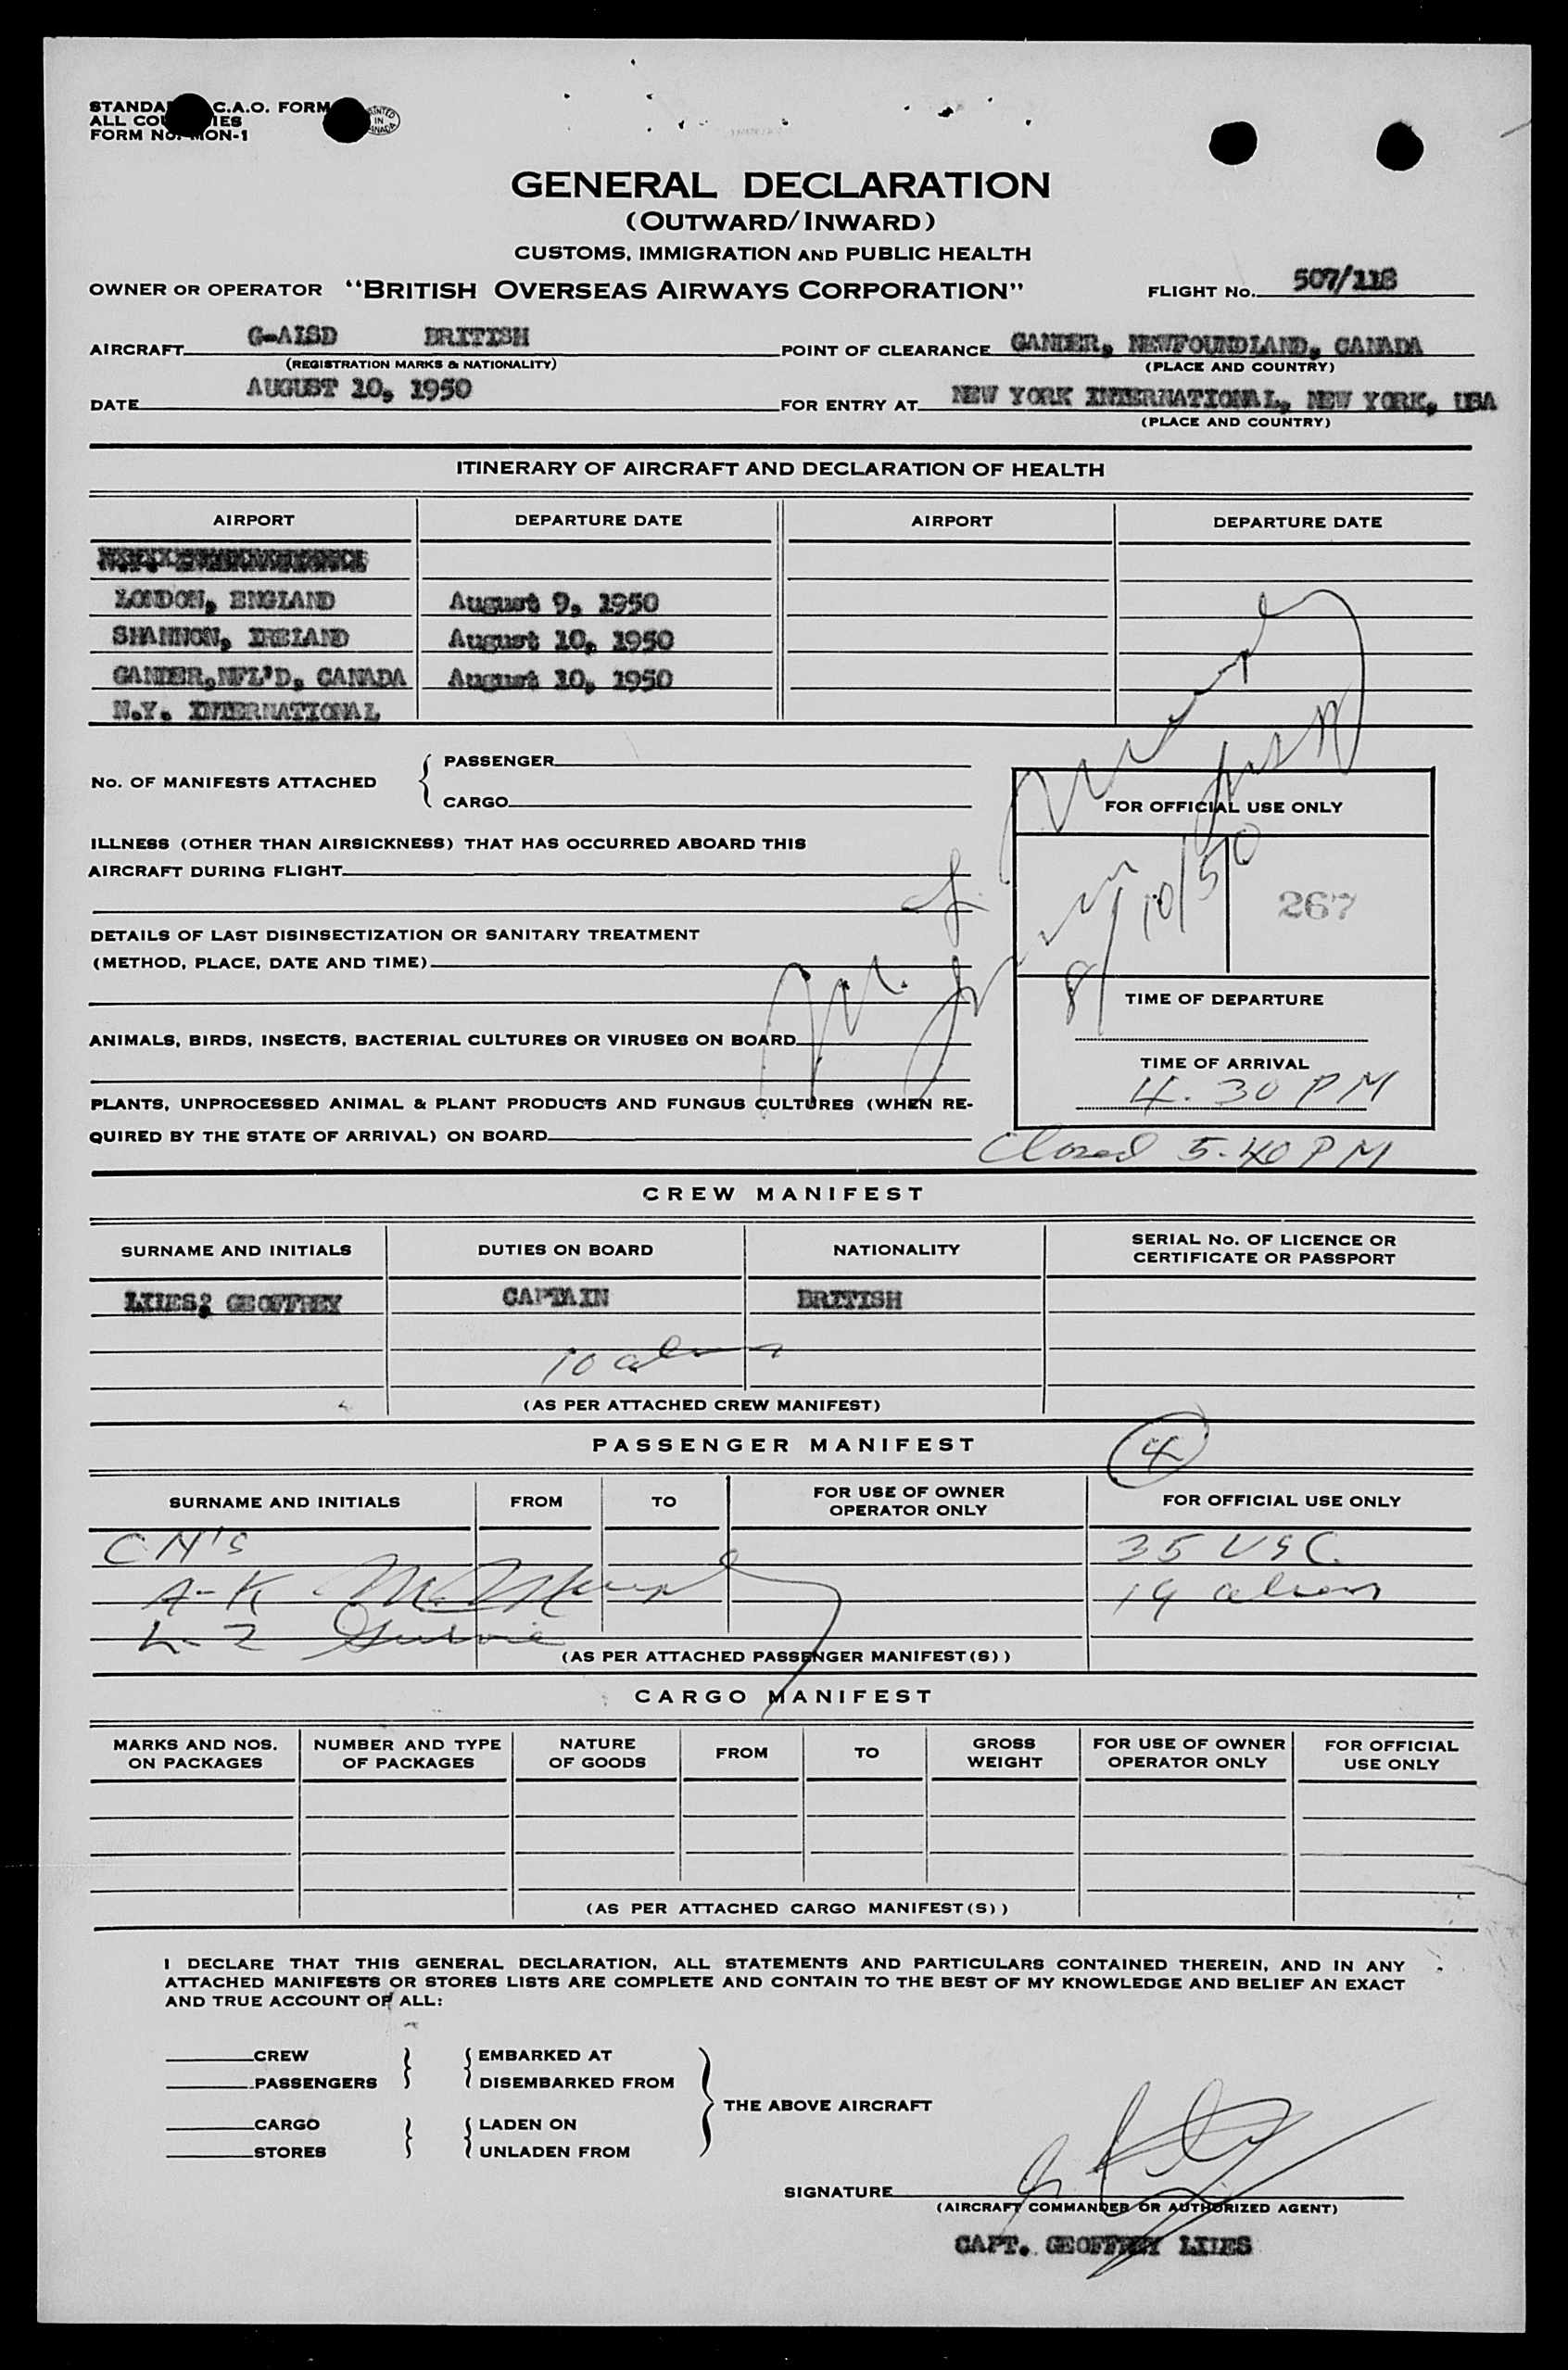 STANDA C.A.O. FORM
ALL COU IES
FORM No. MON-1
PRINTED IN CANADA
GENERAL DECLARATION
(OUTWARD/INWARD)
CUSTOMS, IMMIGRATION AND PUBLIC HEALTH
OWNER OR OPERATOR "BRITISH OVERSEAS AIRWAYS CORPORATION" FLIGHT No. 507/118
AIRCRAFT G-AISD BRITISH POINT OF CLEARANCE GANDER, NEWFOUNDLAND, CANADA
(REGISTRATION MARKS & NATIONALITY) (PLACE AND COUNTRY)
DATE AUGUST 10, 1950 FOR ENTRY AT NEW YORK INTERNATIONAL, NEW YORK, USA
(PLACE AND COUNTRY)
ITINERARY OF AIRCRAFT AND DECLARATION OF HEALTH
AIRPORT DEPARTURE DATE AIRPORT DEPARTURE DATE
LONDON, ENGLAND August 9, 1950
SHANNON, IRELAND August 10, 1950
GANDER, NFL'D, CANADA August 10, 1950
N.Y. INTERNATIONAL
No. OF MANIFESTS ATTACHED { PASSENGER
CARGO
FOR OFFICIAL USE ONLY
ILLNESS (OTHER THAN AIRSICKNESS) THAT HAS OCCURRED ABOARD THIS
AIRCRAFT DURING FLIGHT
8/10/50 267
DETAILS OF LAST DISINSECTIZATION OR SANITARY TREATMENT
(METHOD, PLACE, DATE AND TIME)
TIME OF DEPARTURE
ANIMALS, BIRDS, INSECTS, BACTERIAL CULTURES OR VIRUSES ON BOARD
TIME OF ARRIVAL
4.30 PM
PLANTS, UNPROCESSED ANIMAL & PLANT PRODUCTS AND FUNGUS CULTURES (WHEN RE-
QUIRED BY THE STATE OF ARRIVAL) ON BOARD
Closed 5.40 PM
CREW MANIFEST
SURNAME AND INITIALS DUTIES ON BOARD NATIONALITY SERIAL No. OF LICENCE OR CERTIFICATE OR PASSPORT
GEOFFREY CAPTAIN BRITISH
10 aliens
(AS PER ATTACHED CREW MANIFEST)
PASSENGER MANIFEST 4
SURNAME AND INITIALS FROM TO FOR USE OF OWNER OPERATOR ONLY FOR OFFICIAL USE ONLY
CM'S 35 USC.
A-K 19 aliens
L-Z
(AS PER ATTACHED PASSENGER MANIFEST(S))
CARGO MANIFEST
MARKS AND NOS. ON PACKAGES NUMBER AND TYPE OF PACKAGES NATURE OF GOODS FROM TO GROSS WEIGHT FOR USE OF OWNER OPERATOR ONLY FOR OFFICIAL USE ONLY
(AS PER ATTACHED CARGO MANIFEST(S))
I DECLARE THAT THIS GENERAL DECLARATION, ALL STATEMENTS AND PARTICULARS CONTAINED THEREIN, AND IN ANY
ATTACHED MANIFESTS OR STORES LISTS ARE COMPLETE AND CONTAIN TO THE BEST OF MY KNOWLEDGE AND BELIEF AN EXACT
AND TRUE ACCOUNT OF ALL:
CREW } { EMBARKED AT
PASSENGERS } { DISEMBARKED FROM
THE ABOVE AIRCRAFT
CARGO } { LADEN ON
STORES } { UNLADEN FROM
SIGNATURE
(AIRCRAFT COMMANDER OR AUTHORIZED AGENT)
CAPT. GEOFFREY